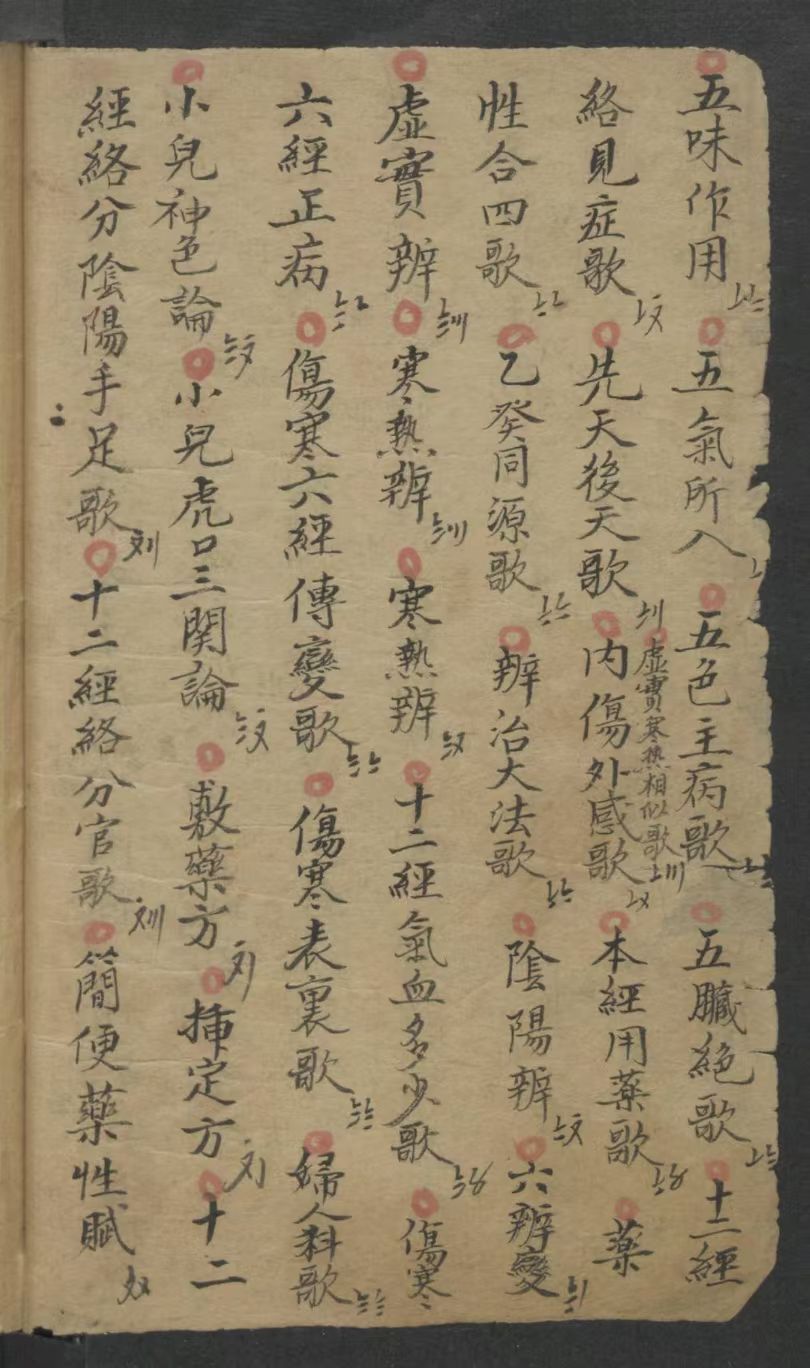 五味作用 五氣所入 五色主病歌 五臟絕歌 十二經
絡見症歌 先天後天歌 虛實寒熱相似歌 內傷外感歌 本經用藥歌 藥
性合四歌 乙癸同源歌 辦治大法歌 陰陽辦 六辦變
虛實辦 寒熱辦 寒熱辦 十二經氣血多少歌 傷寒
六經正病 傷寒六經傳變歌 傷寒表裏歌 婦人科歌
小兒神色論 小兒虎口三関論 敷藥方 㨂定方 十二
經絡分陰陽手足歌 十二經絡分官歌 簡便藥性賦